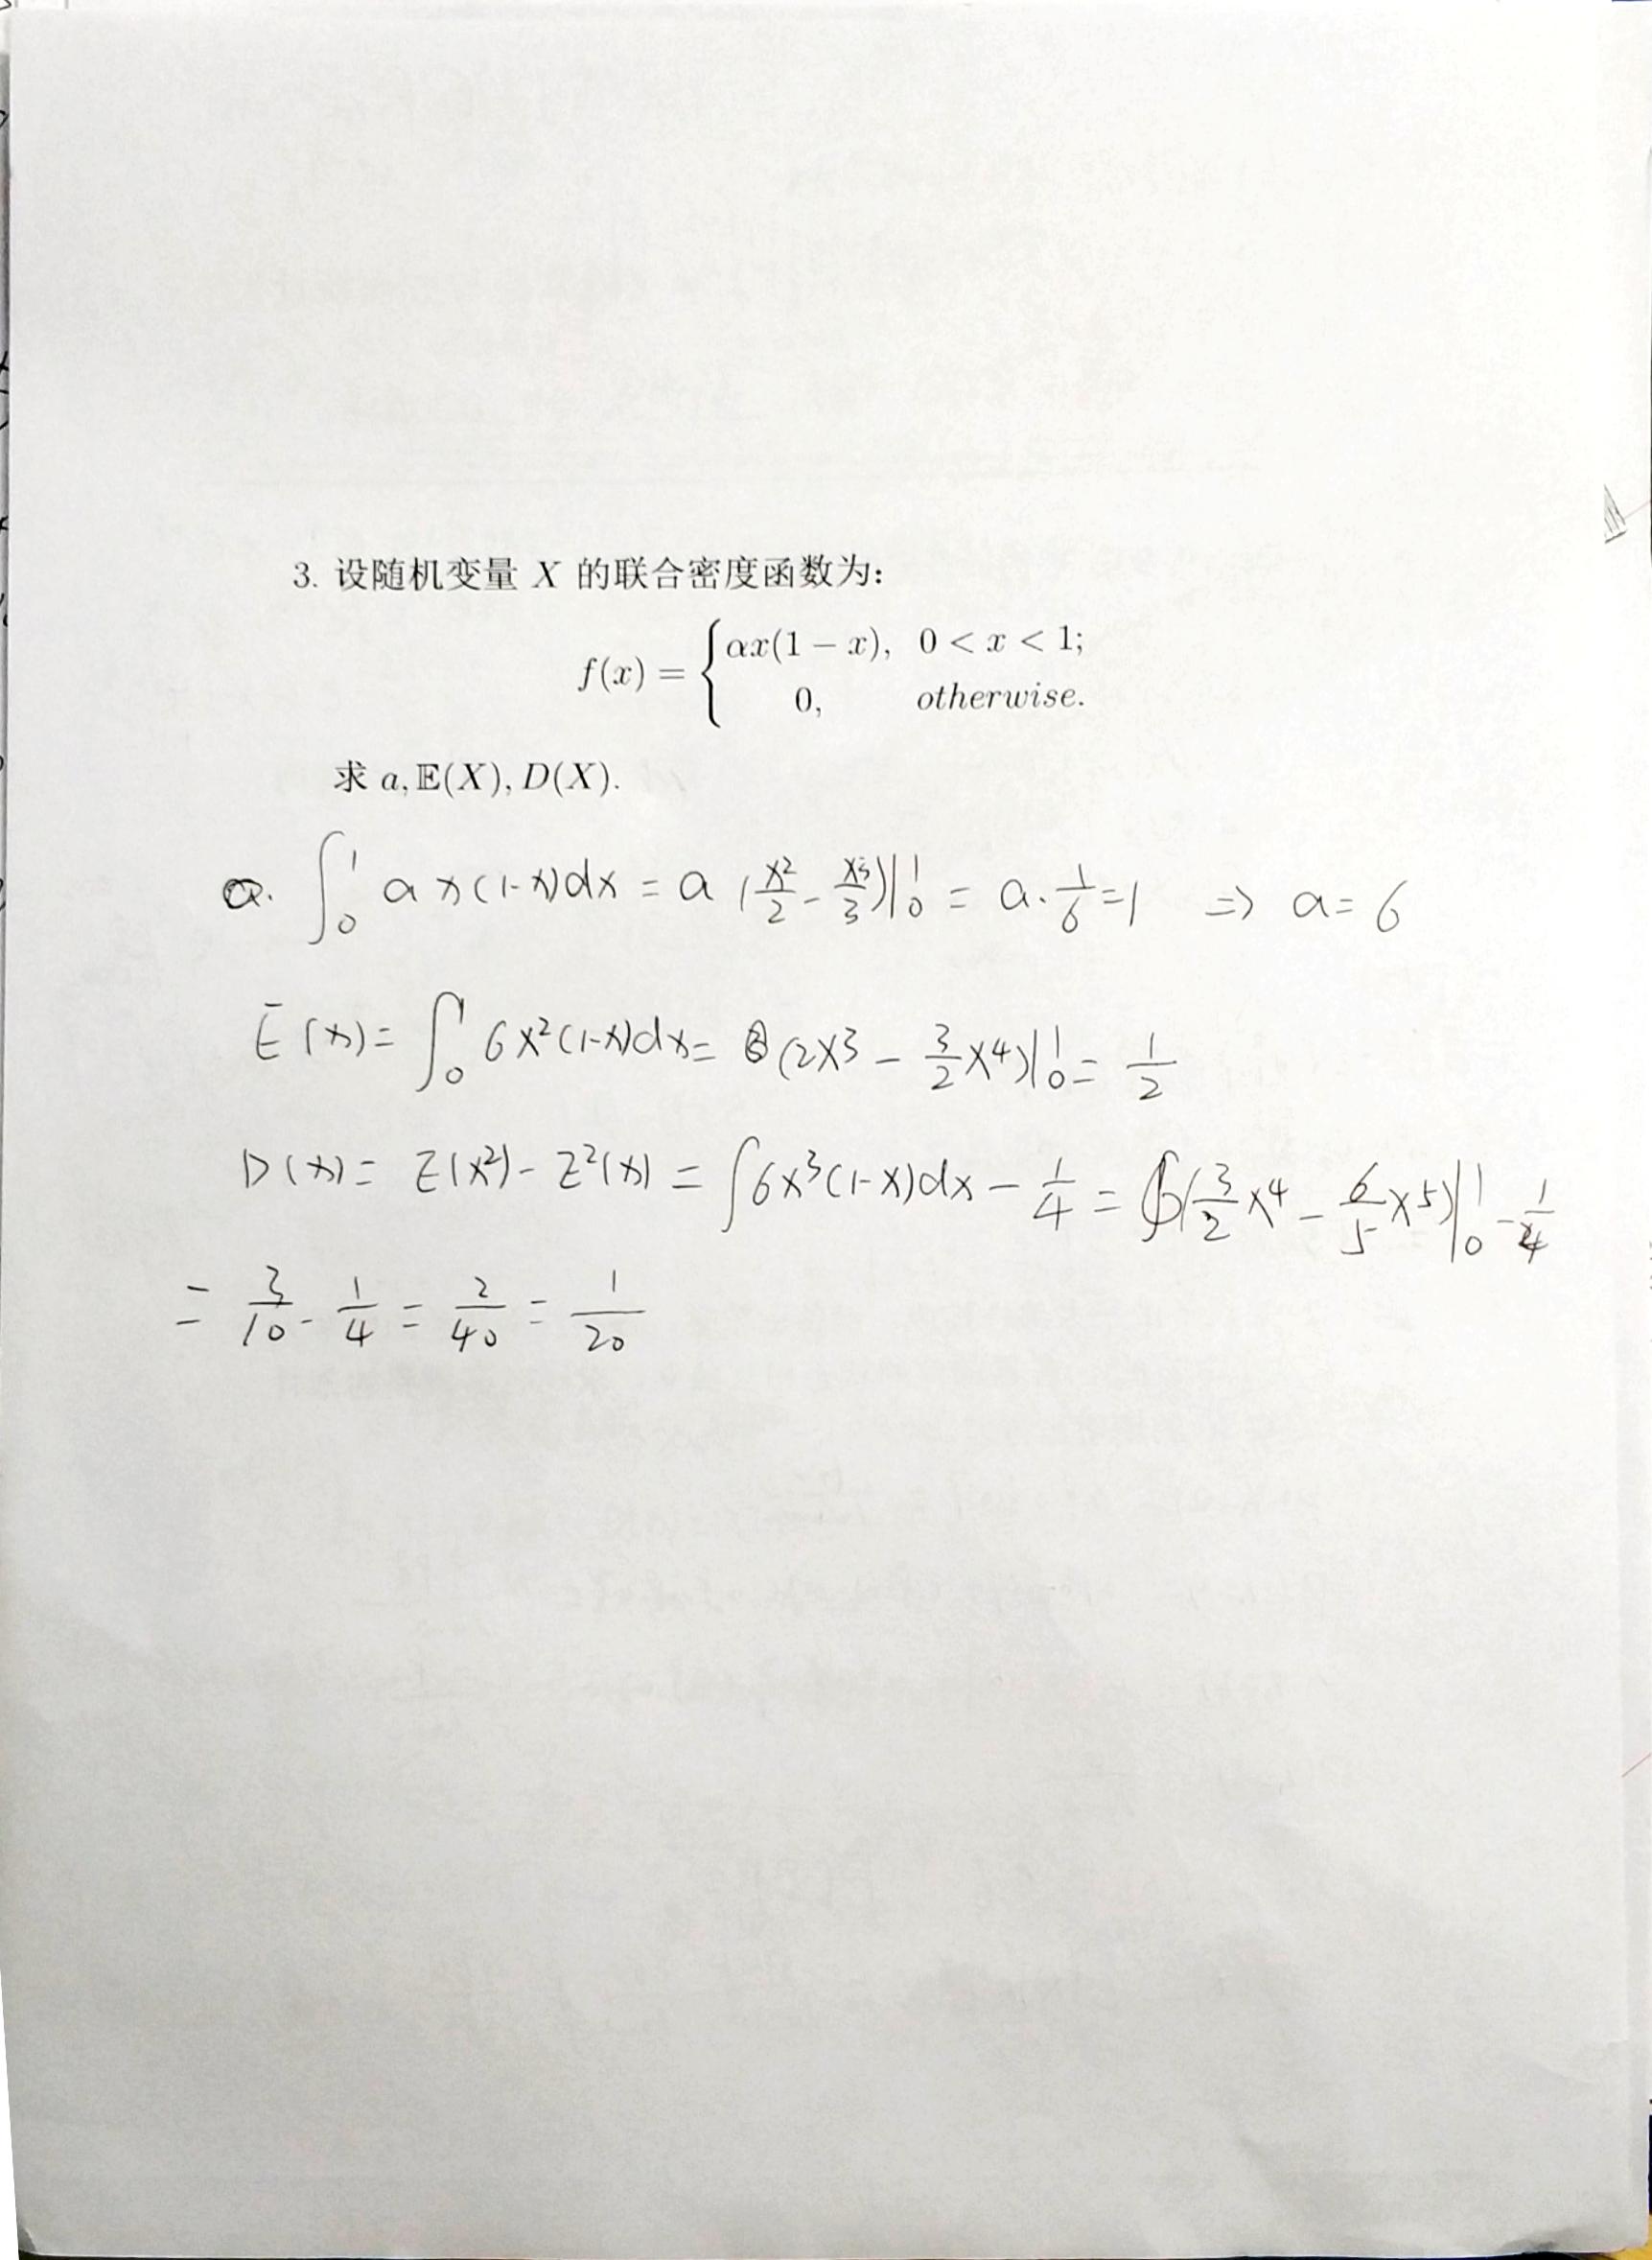 3. 设随机变量 X 的联合密度函数为:
f(x) = { αx(1 − x), 0 < x < 1;
0, otherwise.
求 a, 𝔼(X), D(X).
a. ∫₀¹ a x(1-x)dx = a (x²/2 - x³/3)|₀¹ = a·1/6 = 1 ⇒ a = 6
E(x) = ∫₀¹ 6x²(1-x)dx = (2x³ - 3/2 x⁴)|₀¹ = 1/2
D(x) = E(x²) - E²(x) = ∫6x³(1-x)dx - 1/4 = (3/2 x⁴ - 6/5 x⁵)|₀¹ - 1/4
= 3/10 - 1/4 = 2/40 = 1/20